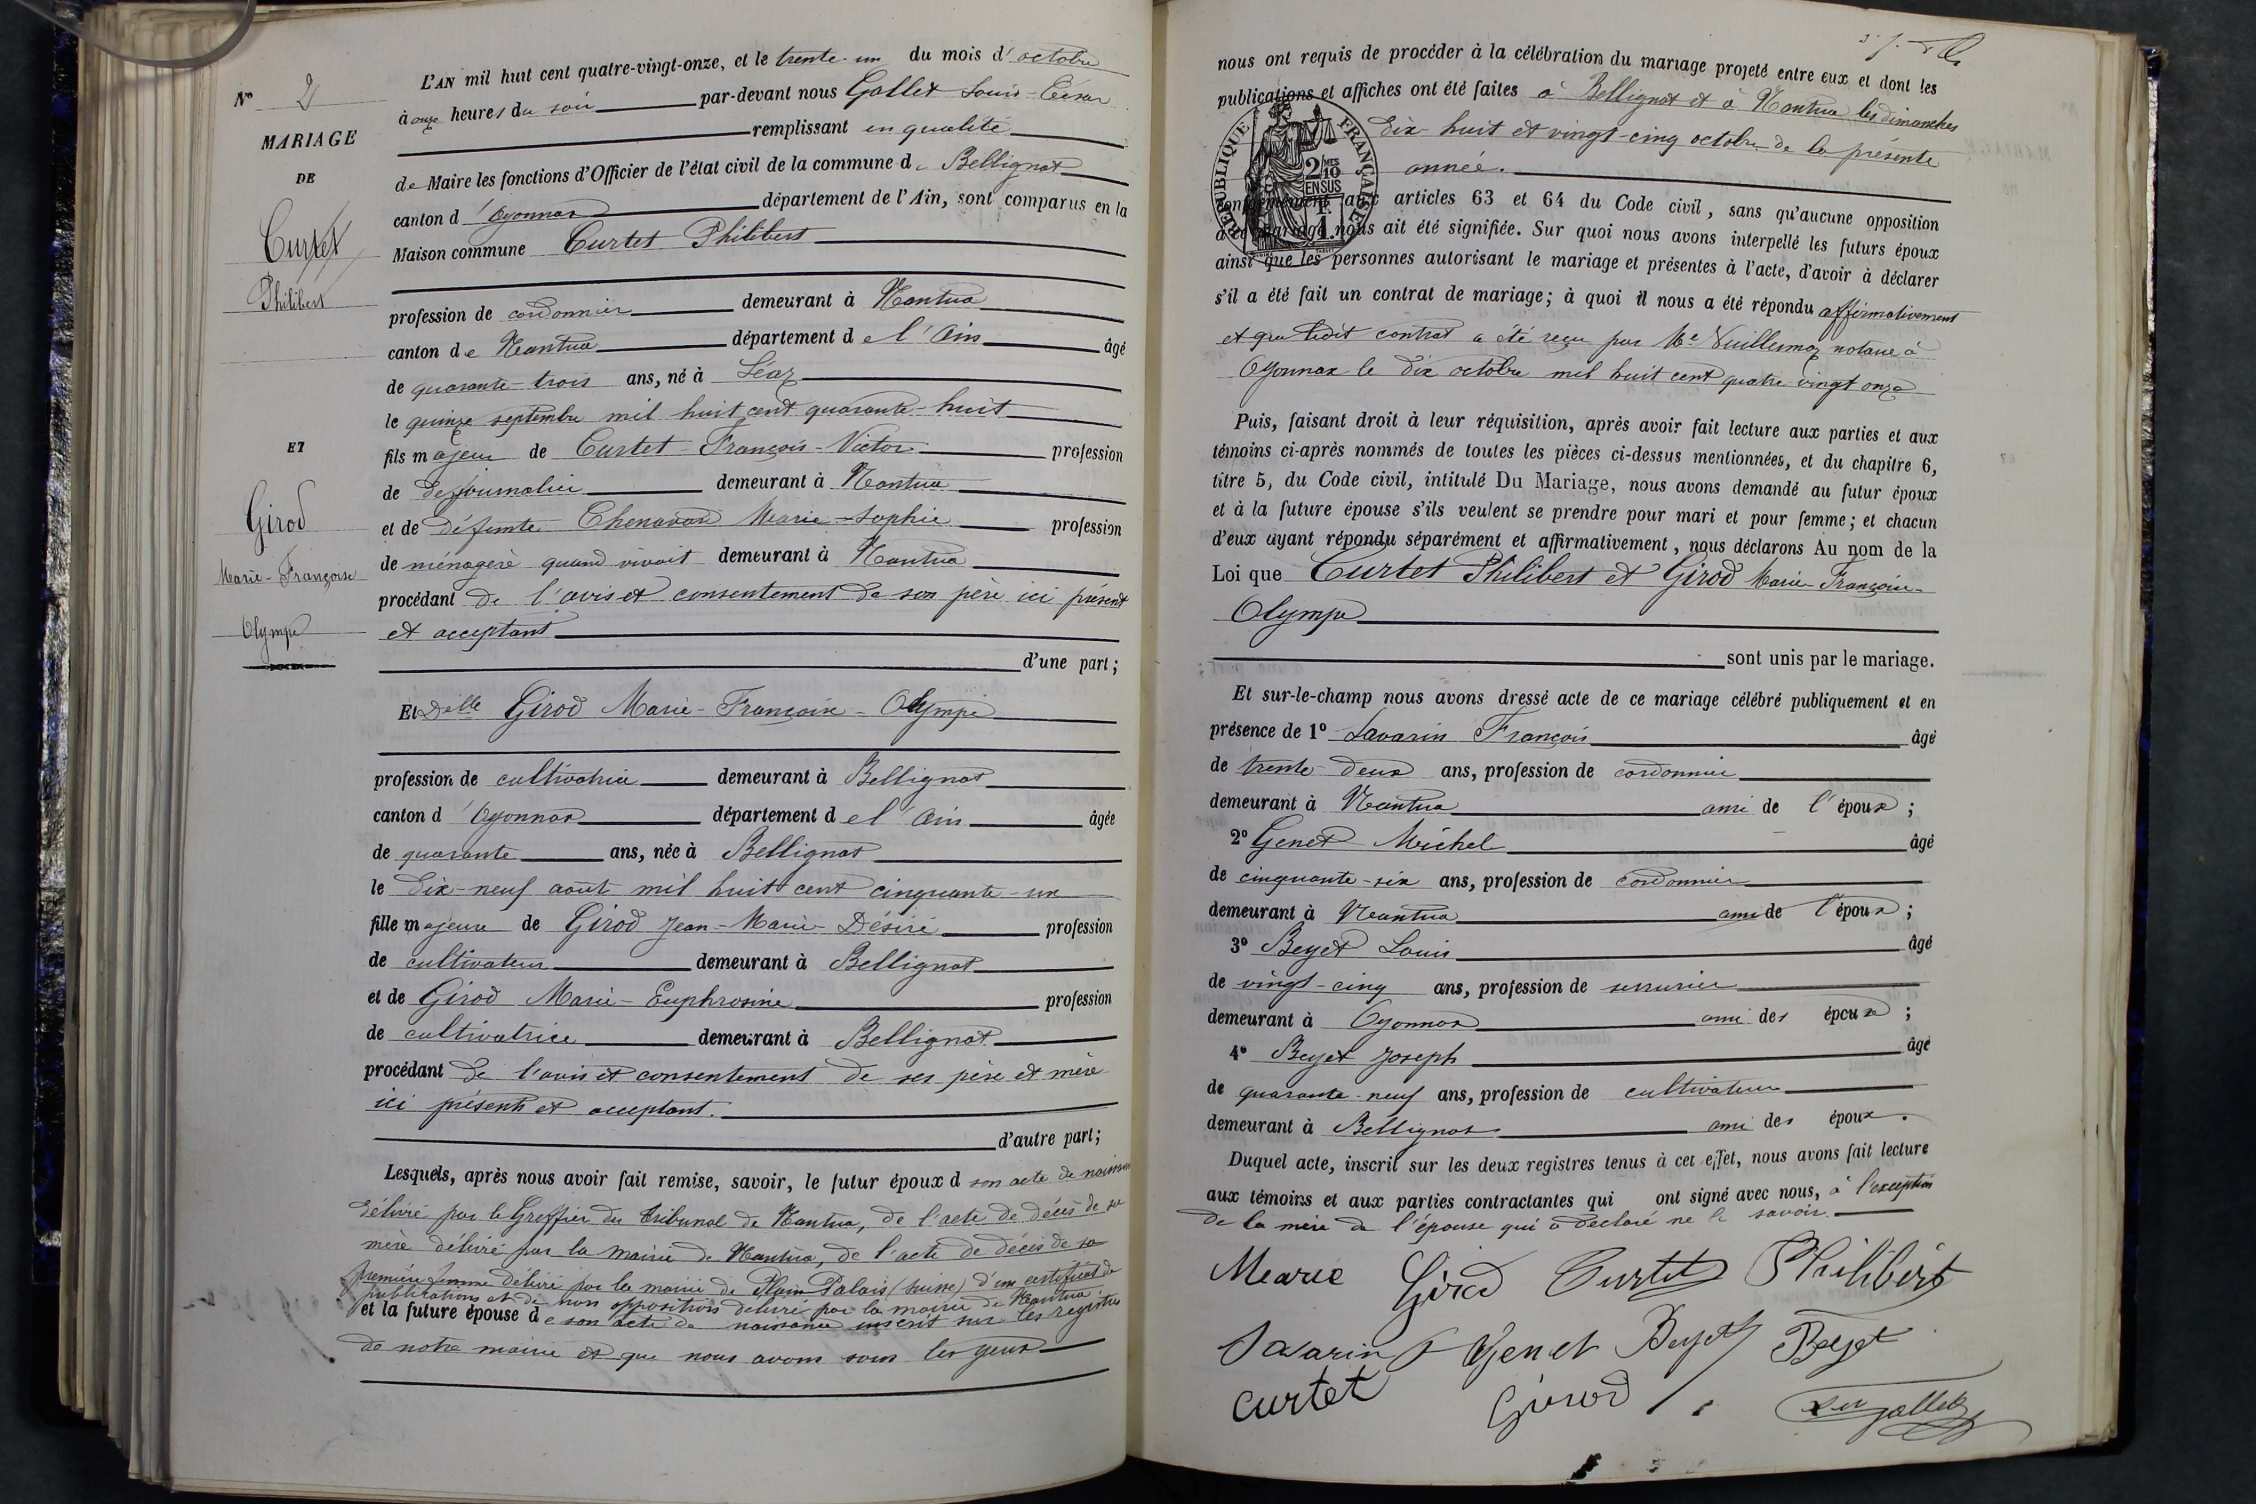 N° 2
MARIAGE
DE
Curtet
Philibert
ET
Girod
Marie-Françoise
Olympe
L'AN mil huit cent quatre-vingt-onze, et le trente-un du mois d'octobre
à onze heures du soir par-devant nous Gallet Louis-César
remplissant en qualité
de Maire les fonctions d'Officier de l'état civil de la commune de Bellignat
canton d'Oyonnax département de l'Ain, sont comparus en la
Maison commune Curtet Philibert
profession de cordonnier demeurant à Nantua
canton de Nantua département de l'Ain âgé
de quarante-trois ans, né à Léaz
le quinze septembre mil huit cent quarante-huit
fils majeur de Curtet François-Victor profession
de de journalier demeurant à Nantua
et de défunte Chenavaz Marie-Sophie profession
de ménagère quand vivait demeurant à Nantua
procédant de l'avis et consentement de son père ici présent
et acceptant
d'une part;
Et Delle Girod Marie-Françoise-Olympe
profession de cultivatrice demeurant à Bellignat
canton d'Oyonnax département de l'Ain âgée
de quarante ans, née à Bellignat
le dix-neuf août mil huit cent cinquante-un
fille majeure de Girod Jean-Marie-Désiré profession
de cultivateur demeurant à Bellignat
et de Girod Marie-Euphrosine profession
de cultivatrice demeurant à Bellignat
procédant de l'avis et consentement de ses père et mère
ici présents et acceptant.
d'autre part;
Lesquels, après nous avoir fait remise, savoir, le futur époux d son acte de naissance
délivré par le Greffier du tribunal de Nantua, de l'acte de décès de sa
mère délivré par la mairie de Nantua, de l'acte de décès de sa
première femme délivré par la mairie de Plain Palais (Suisse) d'un certificat de
publications et de non oppositions délivré par la mairie de Nantua.
et la future épouse de son acte de naissance inscrit sur les registres
de notre mairie et que nous avons sous les yeux
nous ont requis de procéder à la célébration du mariage projeté entre eux et dont les
publications et affiches ont été faites à Bellignat et à Nantua les dimanches
dix-huit et vingt-cinq octobre de la présente
année.
RÉPUBLIQUE FRANÇAISE
2/10 MES
EN SUS
conformément aux articles 63 et 64 du Code civil, sans qu'aucune opposition
à ce mariage nous ait été signifiée. Sur quoi nous avons interpellé les futurs époux
ainsi que les personnes autorisant le mariage et présentes à l'acte, d'avoir à déclarer
s'il a été fait un contrat de mariage; à quoi il nous a été répondu affirmativement
et que ledit contrat a été reçu par Me Vuillermoz notaire à
Oyonnax le dix octobre mil huit cent quatre vingt onze
Puis, faisant droit à leur réquisition, après avoir fait lecture aux parties et aux
témoins ci-après nommés de toutes les pièces ci-dessus mentionnées, et du chapitre 6,
titre 5, du Code civil, intitulé Du Mariage, nous avons demandé au futur époux
et à la future épouse s'ils veulent se prendre pour mari et pour femme; et chacun
d'eux ayant répondu séparément et affirmativement, nous déclarons Au nom de la
Loi que Curtet Philibert et Girod Marie-Françoise-
Olympe
sont unis par le mariage.
Et sur-le-champ nous avons dressé acte de ce mariage célébré publiquement et en
présence de 1° Savarin François âgé
de trente-deux ans, profession de cordonnier
demeurant à Nantua ami de l'époux;
2° Genet Michel âgé
de cinquante-six ans, profession de cordonnier
demeurant à Nantua ami de l'époux;
3° Beyet Louis âgé
de vingt-cinq ans, profession de serrurier
demeurant à Oyonnax ami des époux;
4° Beyet Joseph âgé
de quarante-neuf ans, profession de cultivateur
demeurant à Bellignat ami des époux.
Duquel acte, inscrit sur les deux registres tenus à cet effet, nous avons fait lecture
aux témoins et aux parties contractantes qui ont signé avec nous, à l'exception
de la mère de l'épouse qui a déclaré ne le savoir.
Marie Girod Curtet Philibert
Savarin f Genet Beyet Beyet
Curtet Girod Gallet